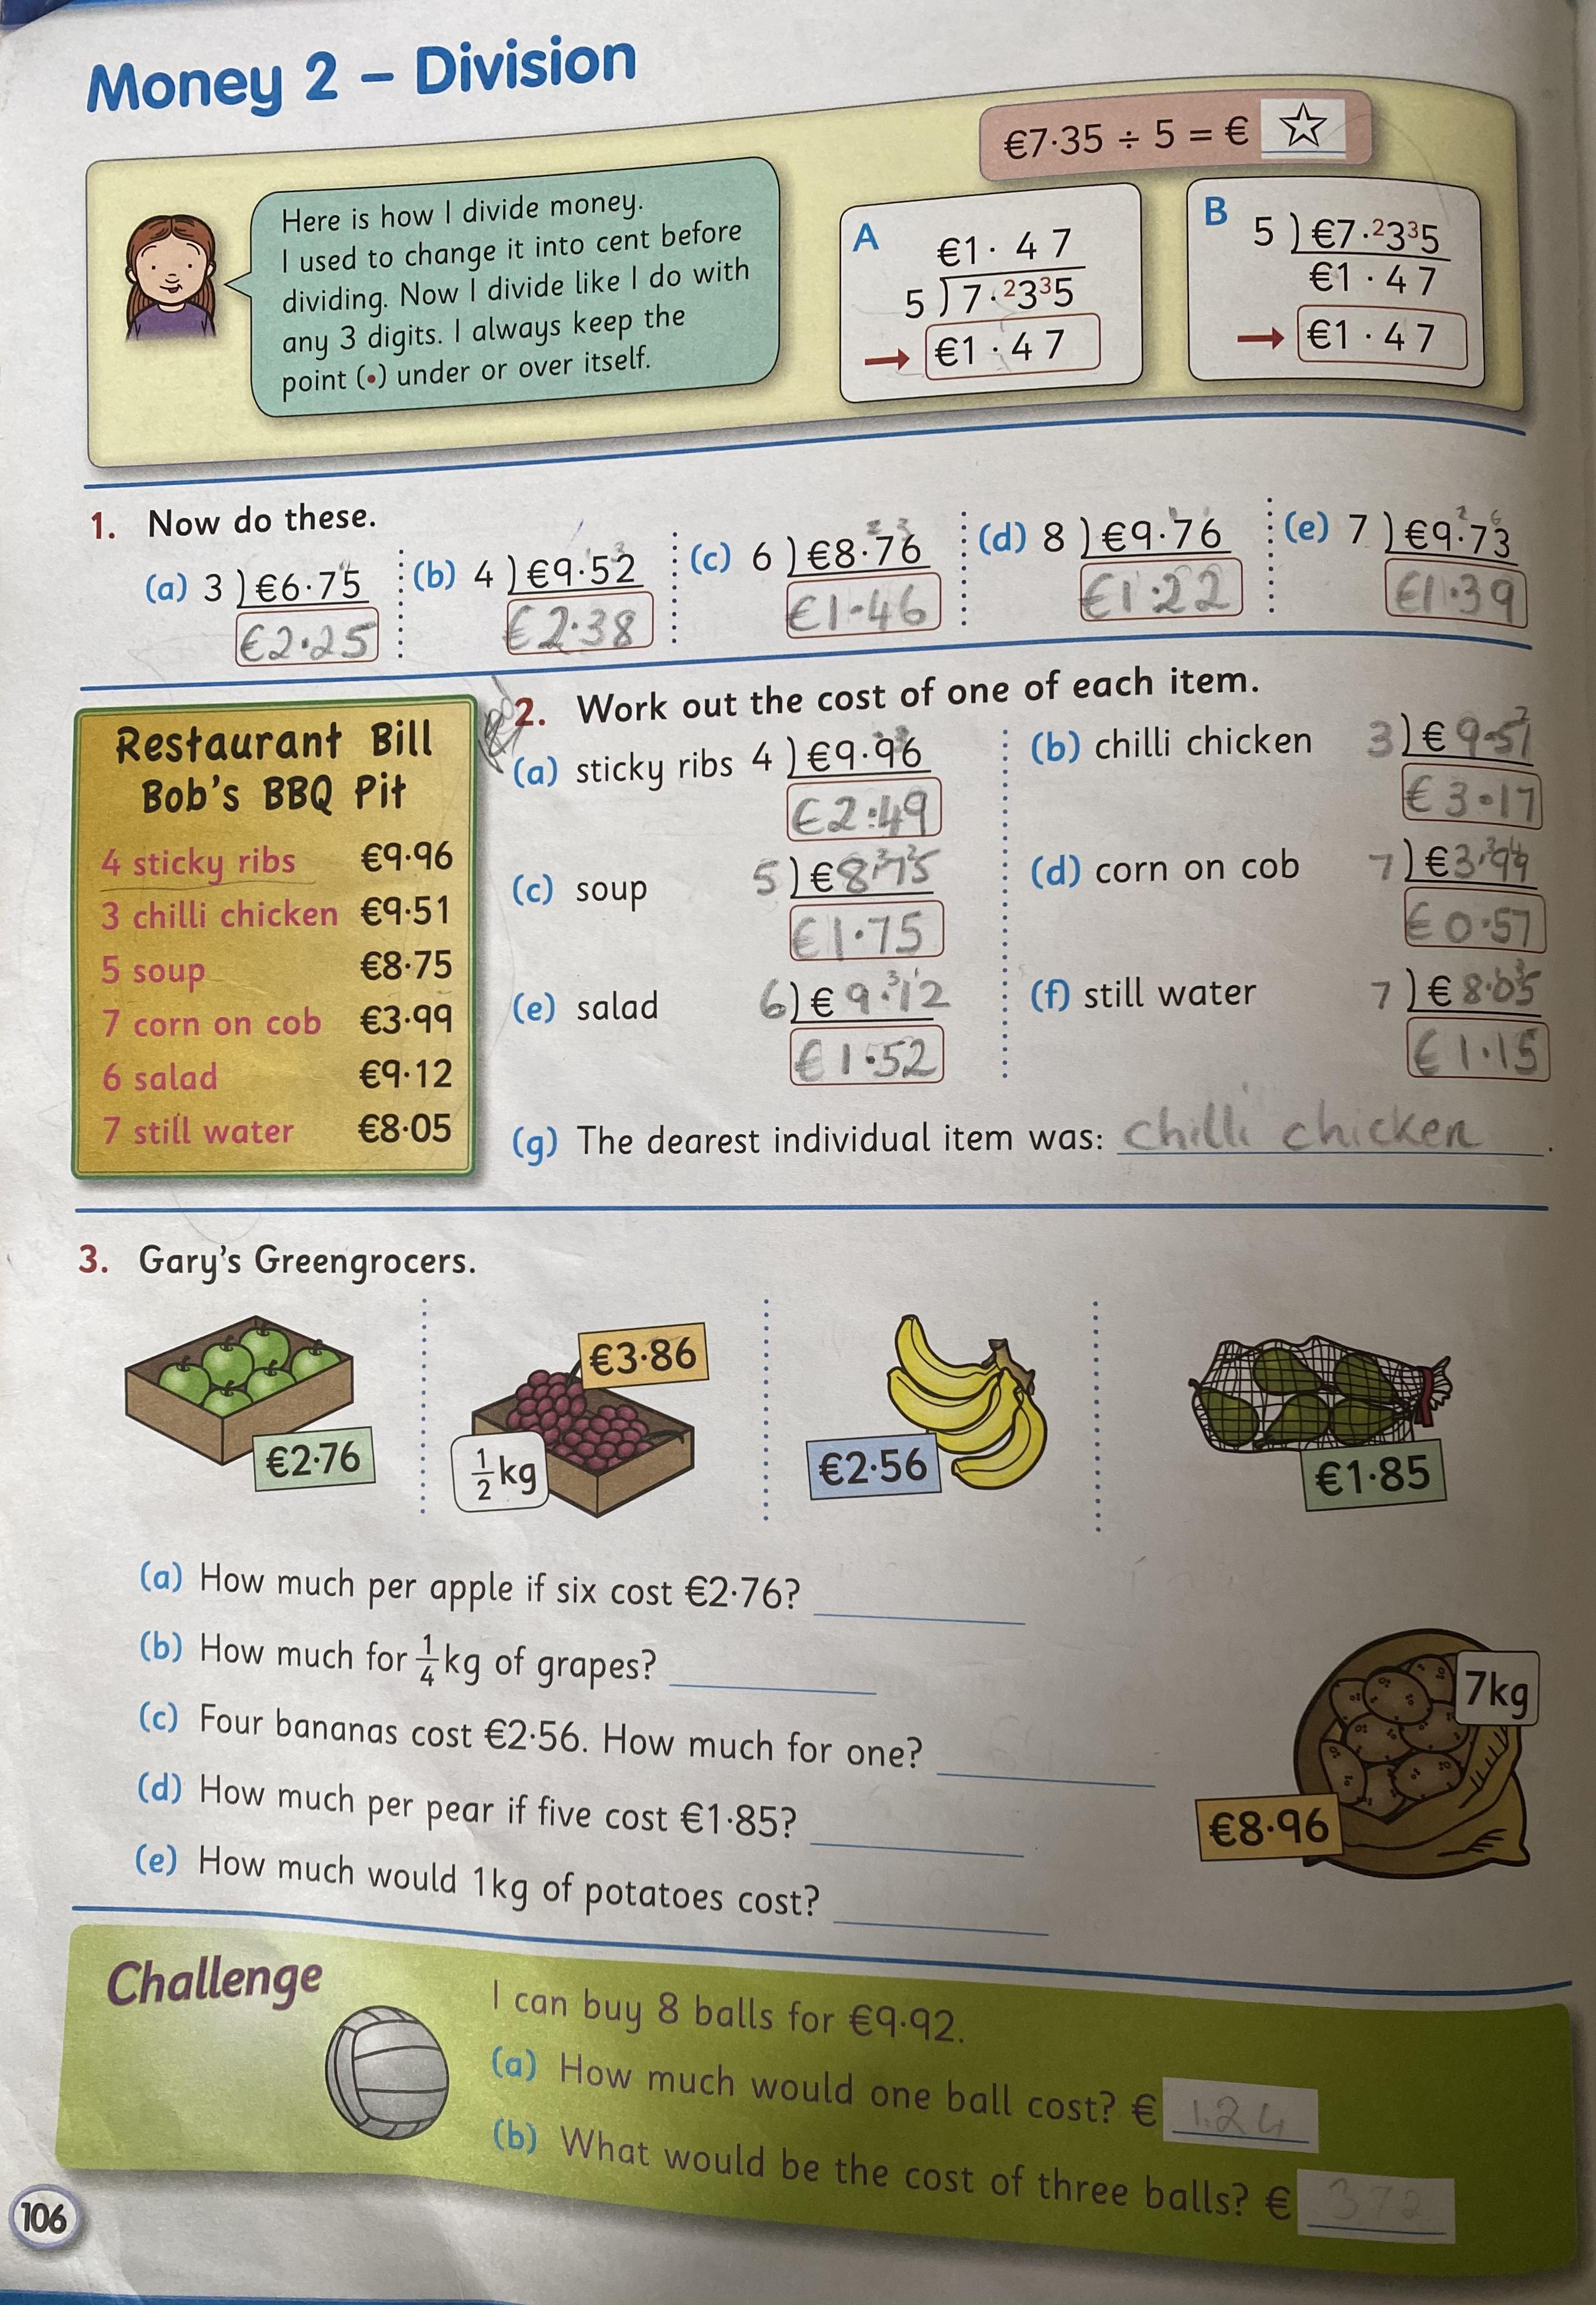 Money 2 – Division
€7·35 ÷ 5 = € ☆
Here is how I divide money.
I used to change it into cent before
dividing. Now I divide like I do with
any 3 digits. I always keep the
point (•) under or over itself.
A
€1· 4 7
5 ) 7·²3³5
→ €1 · 4 7
B
5 ) €7·²3³5
€1 · 4 7
→ €1 · 4 7
1. Now do these.
(a) 3 ) €6·75
€2·25
(b) 4 ) €9·52
€2·38
(c) 6 ) €8·76
€1·46
(d) 8 ) €9·76
€1·22
(e) 7 ) €9·73
€1·39
Restaurant Bill
Bob's BBQ Pit
4 sticky ribs €9·96
3 chilli chicken €9·51
5 soup €8·75
7 corn on cob €3·99
6 salad €9·12
7 still water €8·05
2. Work out the cost of one of each item.
(a) sticky ribs 4 ) €9·96
€2·49
(b) chilli chicken 3 ) €9·51
€3·17
(c) soup 5 ) €8·75
€1·75
(d) corn on cob 7 ) €3·99
€0·57
(e) salad 6 ) €9·12
€1·52
(f) still water 7 ) €8·05
€1·15
(g) The dearest individual item was: chilli chicken.
3. Gary's Greengrocers.
€2·76
€3·86
½kg
€2·56
€1·85
(a) How much per apple if six cost €2·76?
(b) How much for ¼kg of grapes?
(c) Four bananas cost €2·56. How much for one?
(d) How much per pear if five cost €1·85?
(e) How much would 1kg of potatoes cost?
7kg
€8·96
Challenge
I can buy 8 balls for €9·92.
(a) How much would one ball cost? € 1.24
(b) What would be the cost of three balls? € 372
106